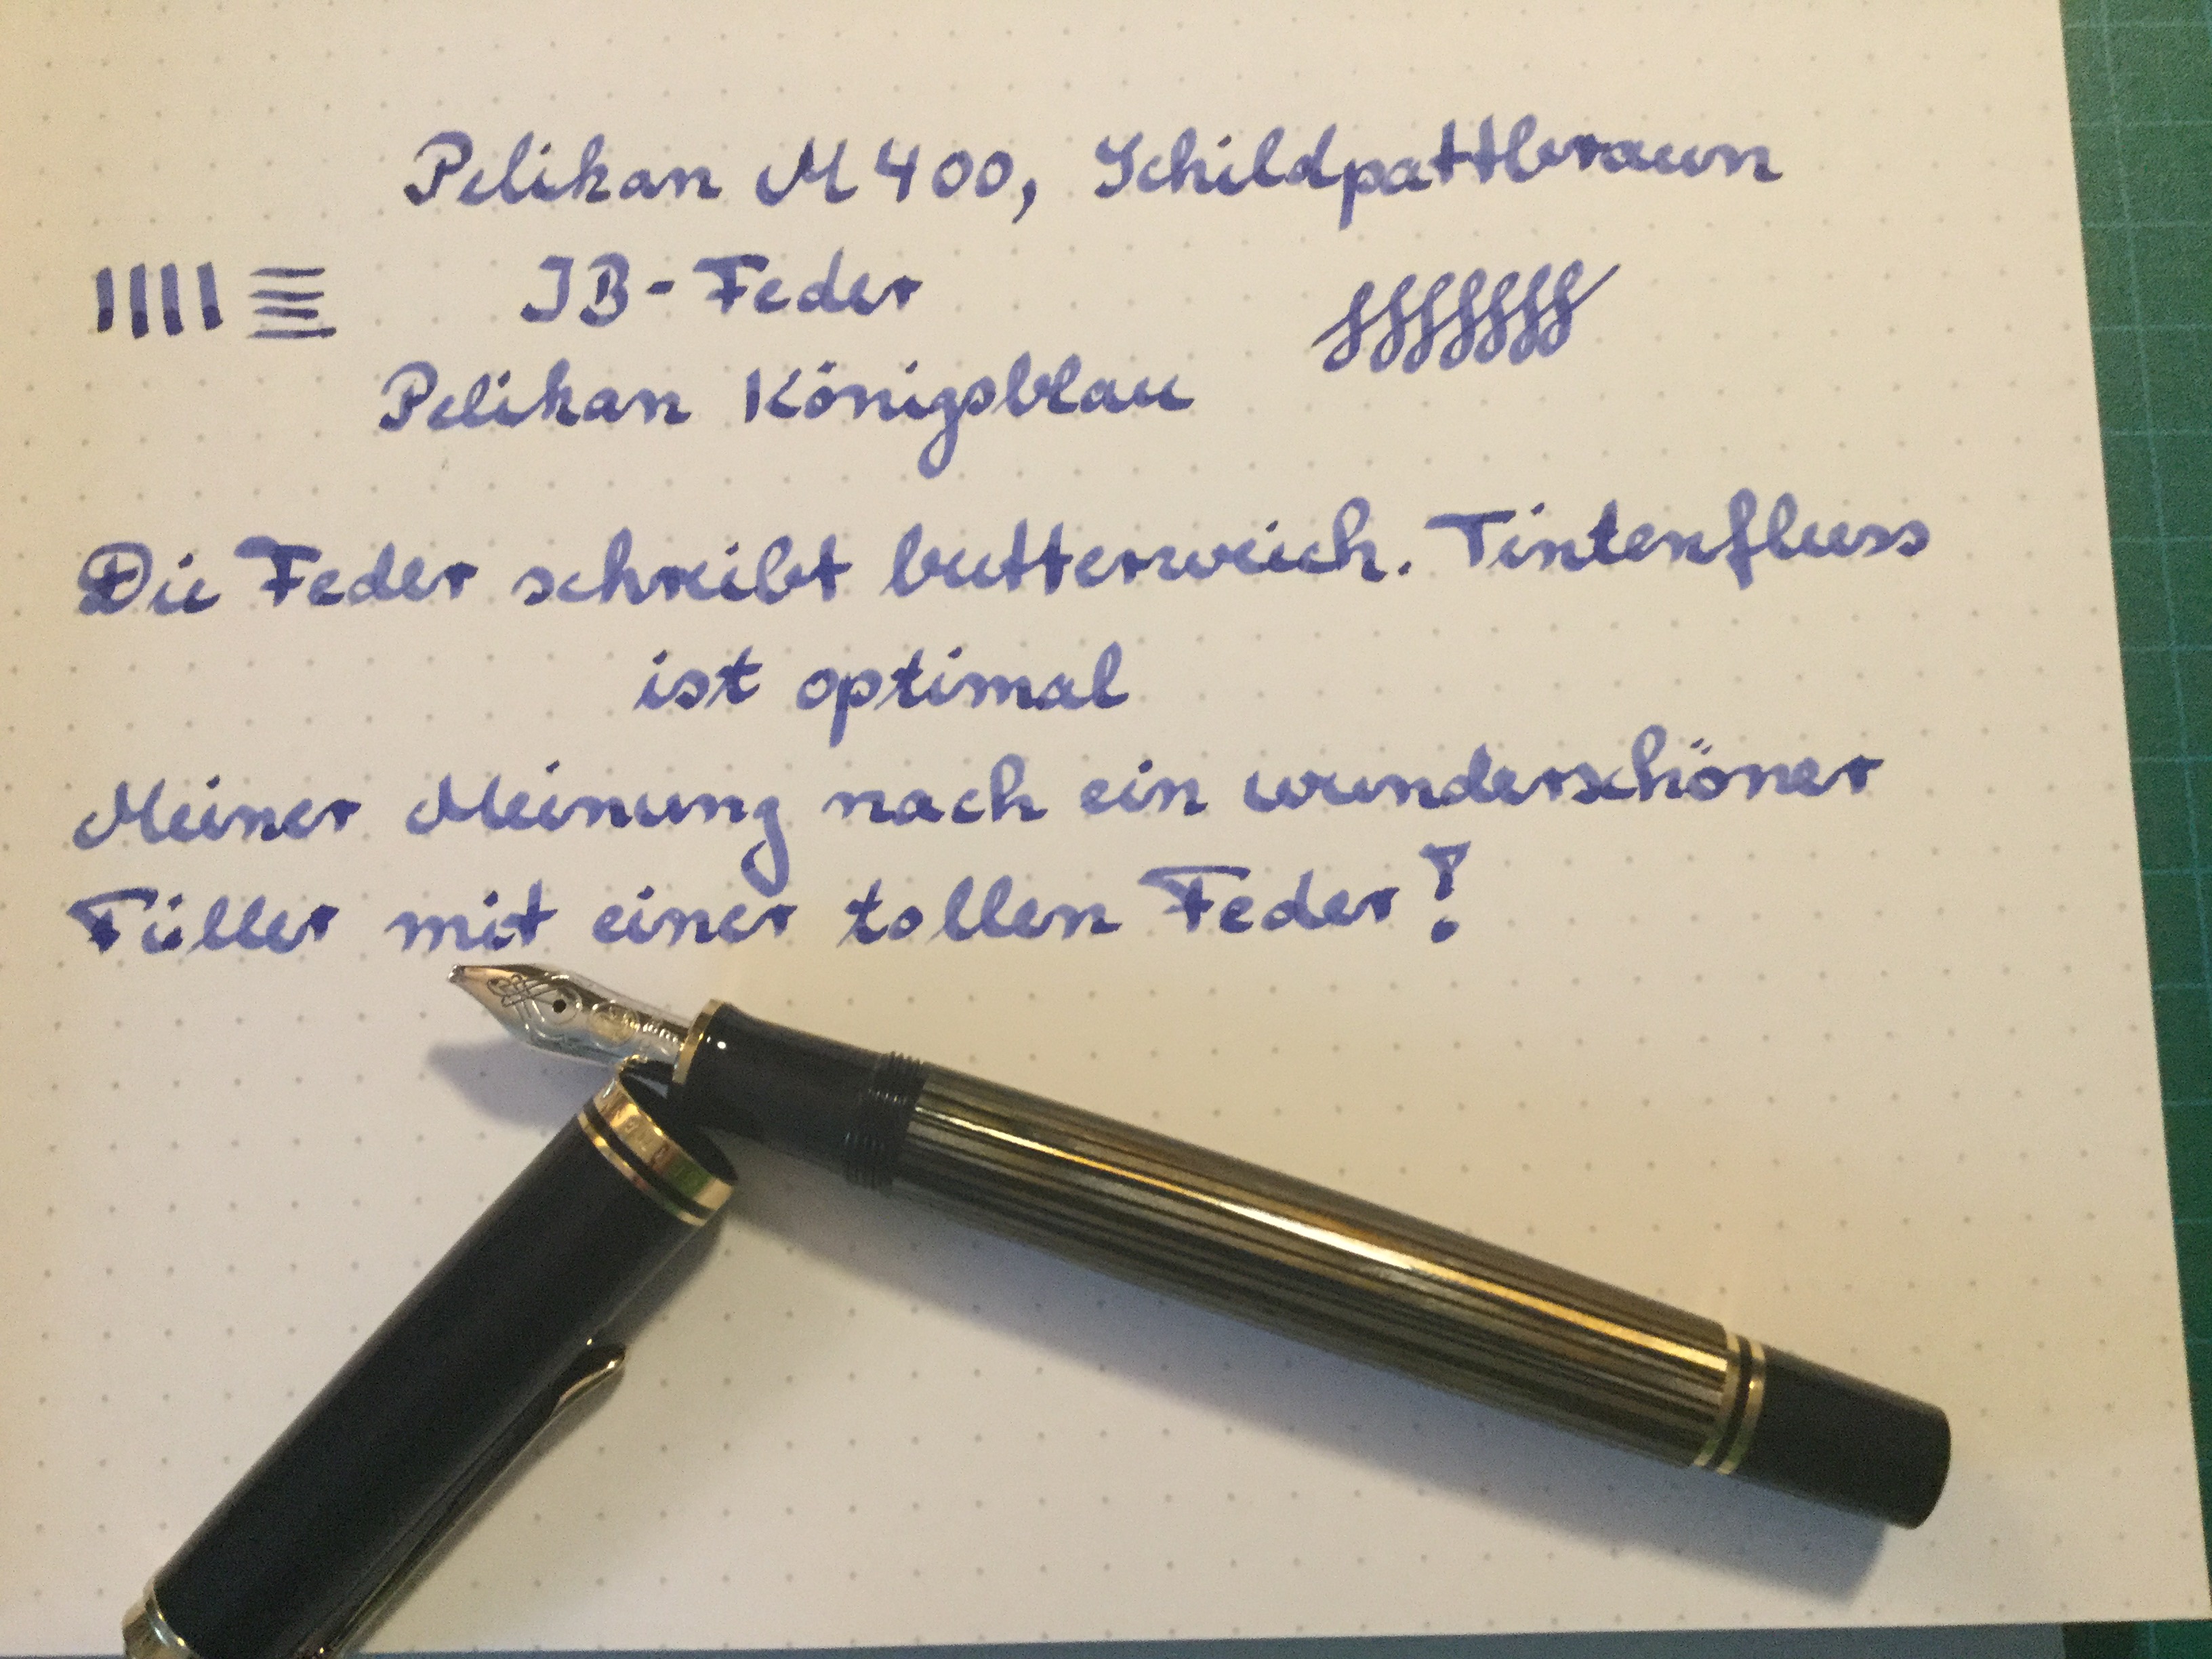 Pelikan M400, Schildpattbraun
IB-Feder
Pelikan Königsblau
Die Feder schreibt butterweich. Tintenfluss
ist optimal
Meiner Meinung nach ein wunderschöner
Füller mit einer tollen Feder!